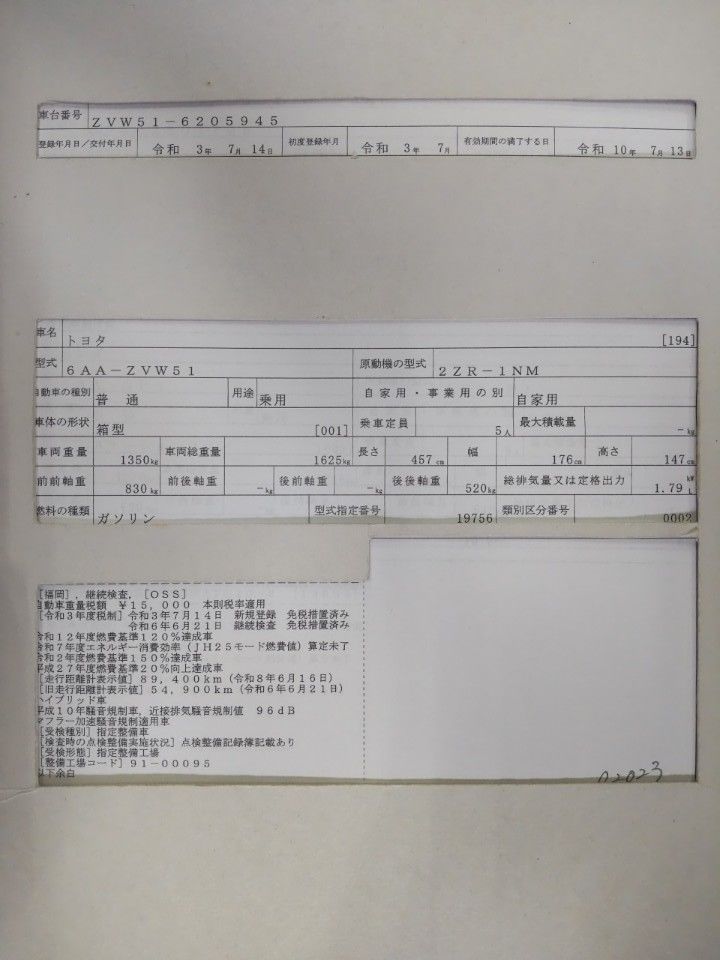 車台番号 ZVW51-6205945
登録年月日/交付年月日 令和 3年 7月 14日 初度登録年月 令和 3年 7月 有効期間の満了する日 令和 10年 7月 13日
車名 トヨタ [194]
型式 6AA-ZVW51 原動機の型式 2ZR-1NM
自動車の種別 普通 用途 乗用 自家用・事業用の別 自家用
車体の形状 箱型 [001] 乗車定員 5人 最大積載量 -kg
車両重量 1350kg 車両総重量 1625kg 長さ 457cm 幅 176cm 高さ 147cm
前前軸重 830kg 前後軸重 -kg 後前軸重 -kg 後後軸重 520kg 総排気量又は定格出力 1.79 kW L
燃料の種類 ガソリン 型式指定番号 19756 類別区分番号 0002
[福岡],継続検査,[OSS]
自動車重量税額 ¥15,000 本則税率適用
[令和3年度税制]令和3年7月14日 新規登録 免税措置済み
令和6年6月21日 継続検査 免税措置済み
令和12年度燃費基準120%達成車
令和7年度エネルギー消費効率(JH25モード燃費値)算定未了
令和2年度燃費基準150%達成車
平成27年度燃費基準20%向上達成車
[走行距離計表示値]89,400km(令和8年6月16日)
[旧走行距離計表示値]54,900km(令和6年6月21日)
ハイブリッド車
平成10年騒音規制車,近接排気騒音規制値 96dB
マフラー加速騒音規制適用車
[受検種別]指定整備車
[検査時の点検整備実施状況]点検整備記録簿記載あり
[受検形態]指定整備工場
[整備工場コード]91-00095
以下余白